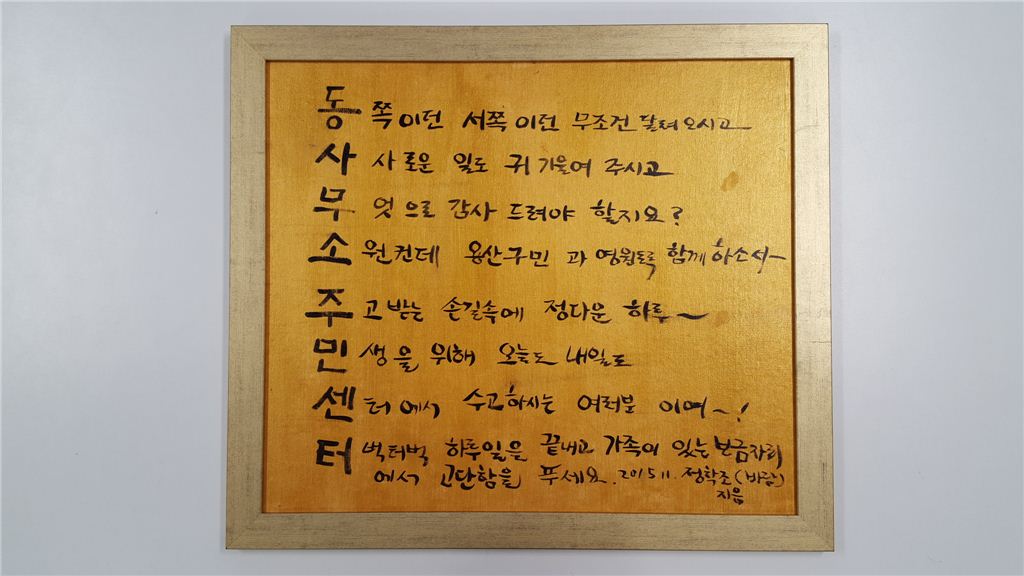 동쪽이던 서쪽이던 무조건 달려오시고
사사로운 일도 귀 기울여 주시고
무엇으로 감사 드려야 할지요?
소원컨데 용산구민과 영원토록 함께하소서~
주고받는 손길속에 정다운 하루~
민생을 위해 오늘도 내일도
센터에서 수고하시는 여러분 이여~!
터벅터벅 하루일을 끝내고 가족이 있는 보금자리
에서 고단함을 푸세요. 2015 11. 정학조(바람)
지음